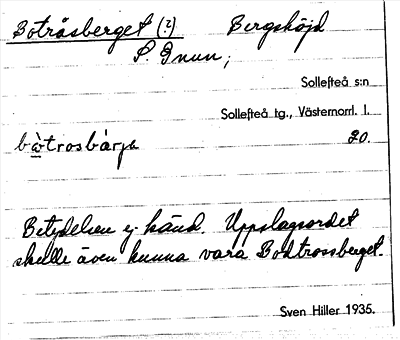 Botråsberget (?) Bergshöjd
S. Onun;
Sollefteå s:n
Sollefteå tg., Västernorrl. l.
bòtrosbàrja 20.
Betydelsen ej känd. Uppslagsordet
skulle även kunna vara Bodtrossberget.
Sven Hiller 1935.